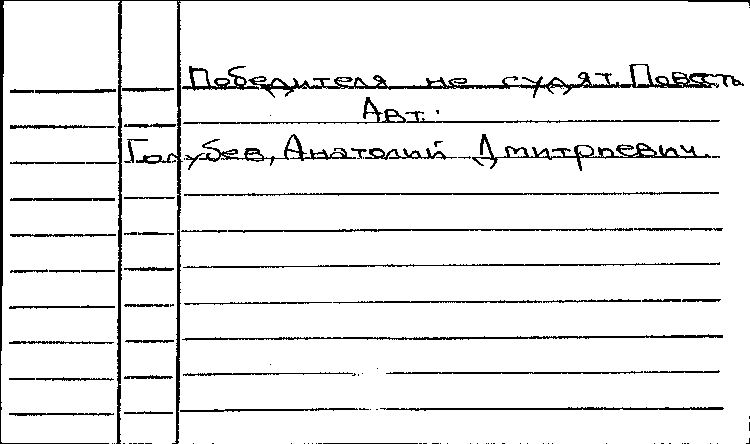 Победителя не судят. Повесть
Авт.:
Голубев, Анатолий Дмитриевич.